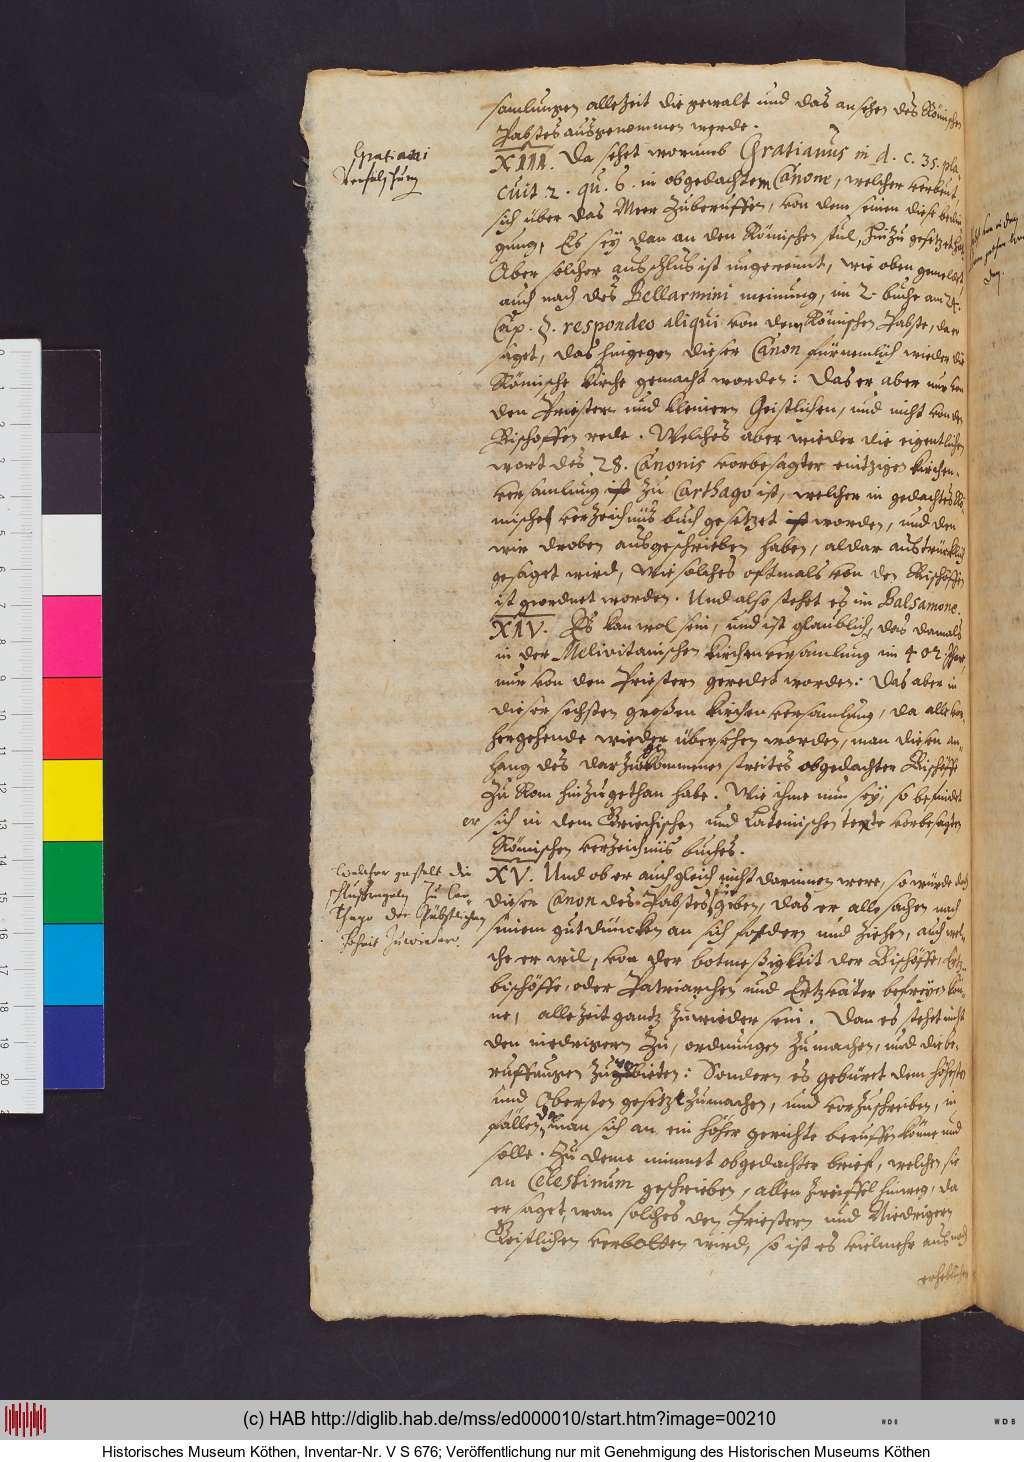 samlungen allezeit die gewalt und das ansehen des Römischen
Pabstes ausgenommen werde.
Gratiani
Verfelschung
XIII. Da sehet worumb Gratianus in d. c. 35. pla-
cuit 2. qu. 6. in obgedachtem Canone, welcher verbeut
sich über das Meer zuberuffen, von dem seinen diese bedin
gung, Es sey dan an den Römischen stul, hinzu gesetzet hat
Aber solcher ausschlus ist ungereimt, wie oben gemeldet
auch nach des Bellarmini meinung, im 2. buche am 24.
Cap. §. respondeo aliqui von dem Römischen Pabste, da er
saget, das hingegen dieser Canon fürnemlich wieder die
Römische kirche gemacht worden: Das er aber nur von
den Priestern und kleinern Geistlichen, und nicht von den
Bischoffen rede. Welches aber wieder die eigentlichen
wort des 28. Canonis vorbesagter einigen kirchen-
versamlung ist zu Carthago ist, welcher in gedachtes Rö-
misches verzeichnüs buch gesetzet ist worden, und den
wir droben ausgeschrieben haben, aldar austrücklich
gesaget wird, wie solches oftmals von den Bischöffen
ist geordnet worden. Und also stehet es im Balsamone.
XIV. Es kan wol sein, und ist glaublich, das damals
in der Melivitanischen kirchenversamlung im 402 Jhar,
nur von den Priestern geredet worden: Das aber in
dieser sechsten grossen kirchen versamlung, da alle vor
hergehende wieder übersehen worden, man diesen an-
hang des darzukommenen streites obgedachter Bischöffe
zu Rom hinzugethan habe. Wie ihme nun sey, so befindet
er sich in dem Griechischen und Lateinischen texte vorbesagten
Römischen verzeichnüs buches.
Welcher gestalt die
schlussregeln zu Car-
thago der Päbstlichen
hoheit zuwieder.
XV. Und ob er auch gleich nicht darinnen were, so würde doch
dieser Canon des Pabstes geben, das er alle sachen nach
seinem gutdüncken an sich fordern und ziehen, auch wel-
che er wil, von der botmessigkeit der Bischöffe, Ertz-
bischöffe, oder Patriarchen und Ertzväter befreyen kön-
ne, allezeit gantz zuwieder sein. Dan es stehet nicht
den niedrigern zu, ordnungen zu machen, und die be-
ruffungen zu verbieten: Sondern es gebüret dem höhesten
und Obersten gesetze zumachen, und vorzuschreiben, in
fällen, da man sich an ein höher gerichte beruffen könne und
solle. Zu deme nimmet obgedachter brief, welchen sie
an Celestinum geschrieben, allen zweiffel hinweg, da
er saget, wan solches den Priestern und Niedrigern
Geistlichen verbotten wird, so ist es vielmehr aus noch
erheblichen